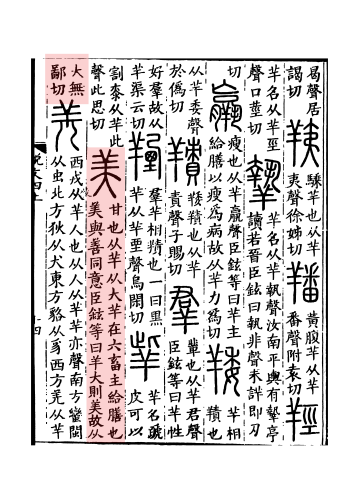 曷聲居
謁切
羠
騬羊也从羊
夷聲徐姊切
羳
黃腹羊从羊
番聲附袁切
羥
羊名从羊巠
聲口莖切
䥍
羊名从羊執聲汝南平輿有䥍亭
讀若晉臣鉉等曰執非聲未詳即刃
切
羸
瘦也从羊𣎆聲臣鉉等曰羊主
給膳以瘦爲病故从羊力爲切
䍴
羊相
䍵也
从羊委聲
於僞切
䍵
䍴䍵也从羊
責聲子賜切
羣
輩也从羊君聲
臣鉉等曰羊性
好羣故从
羊渠云切
羥
羣羊相䍵也一曰黑
羊从羊垔聲烏閑切
羊名蹏
皮可以
割桼从羊此
聲此思切
美
甘也从羊从大羊在六畜主給膳也
美與善同意臣鉉等曰羊大則美故从
大無
鄙切
羌
西戎从羊人也从人从羊羊亦聲南方蠻閩
从虫北方狄从犬東方貉从豸西方羌从羊
說文四上
十四